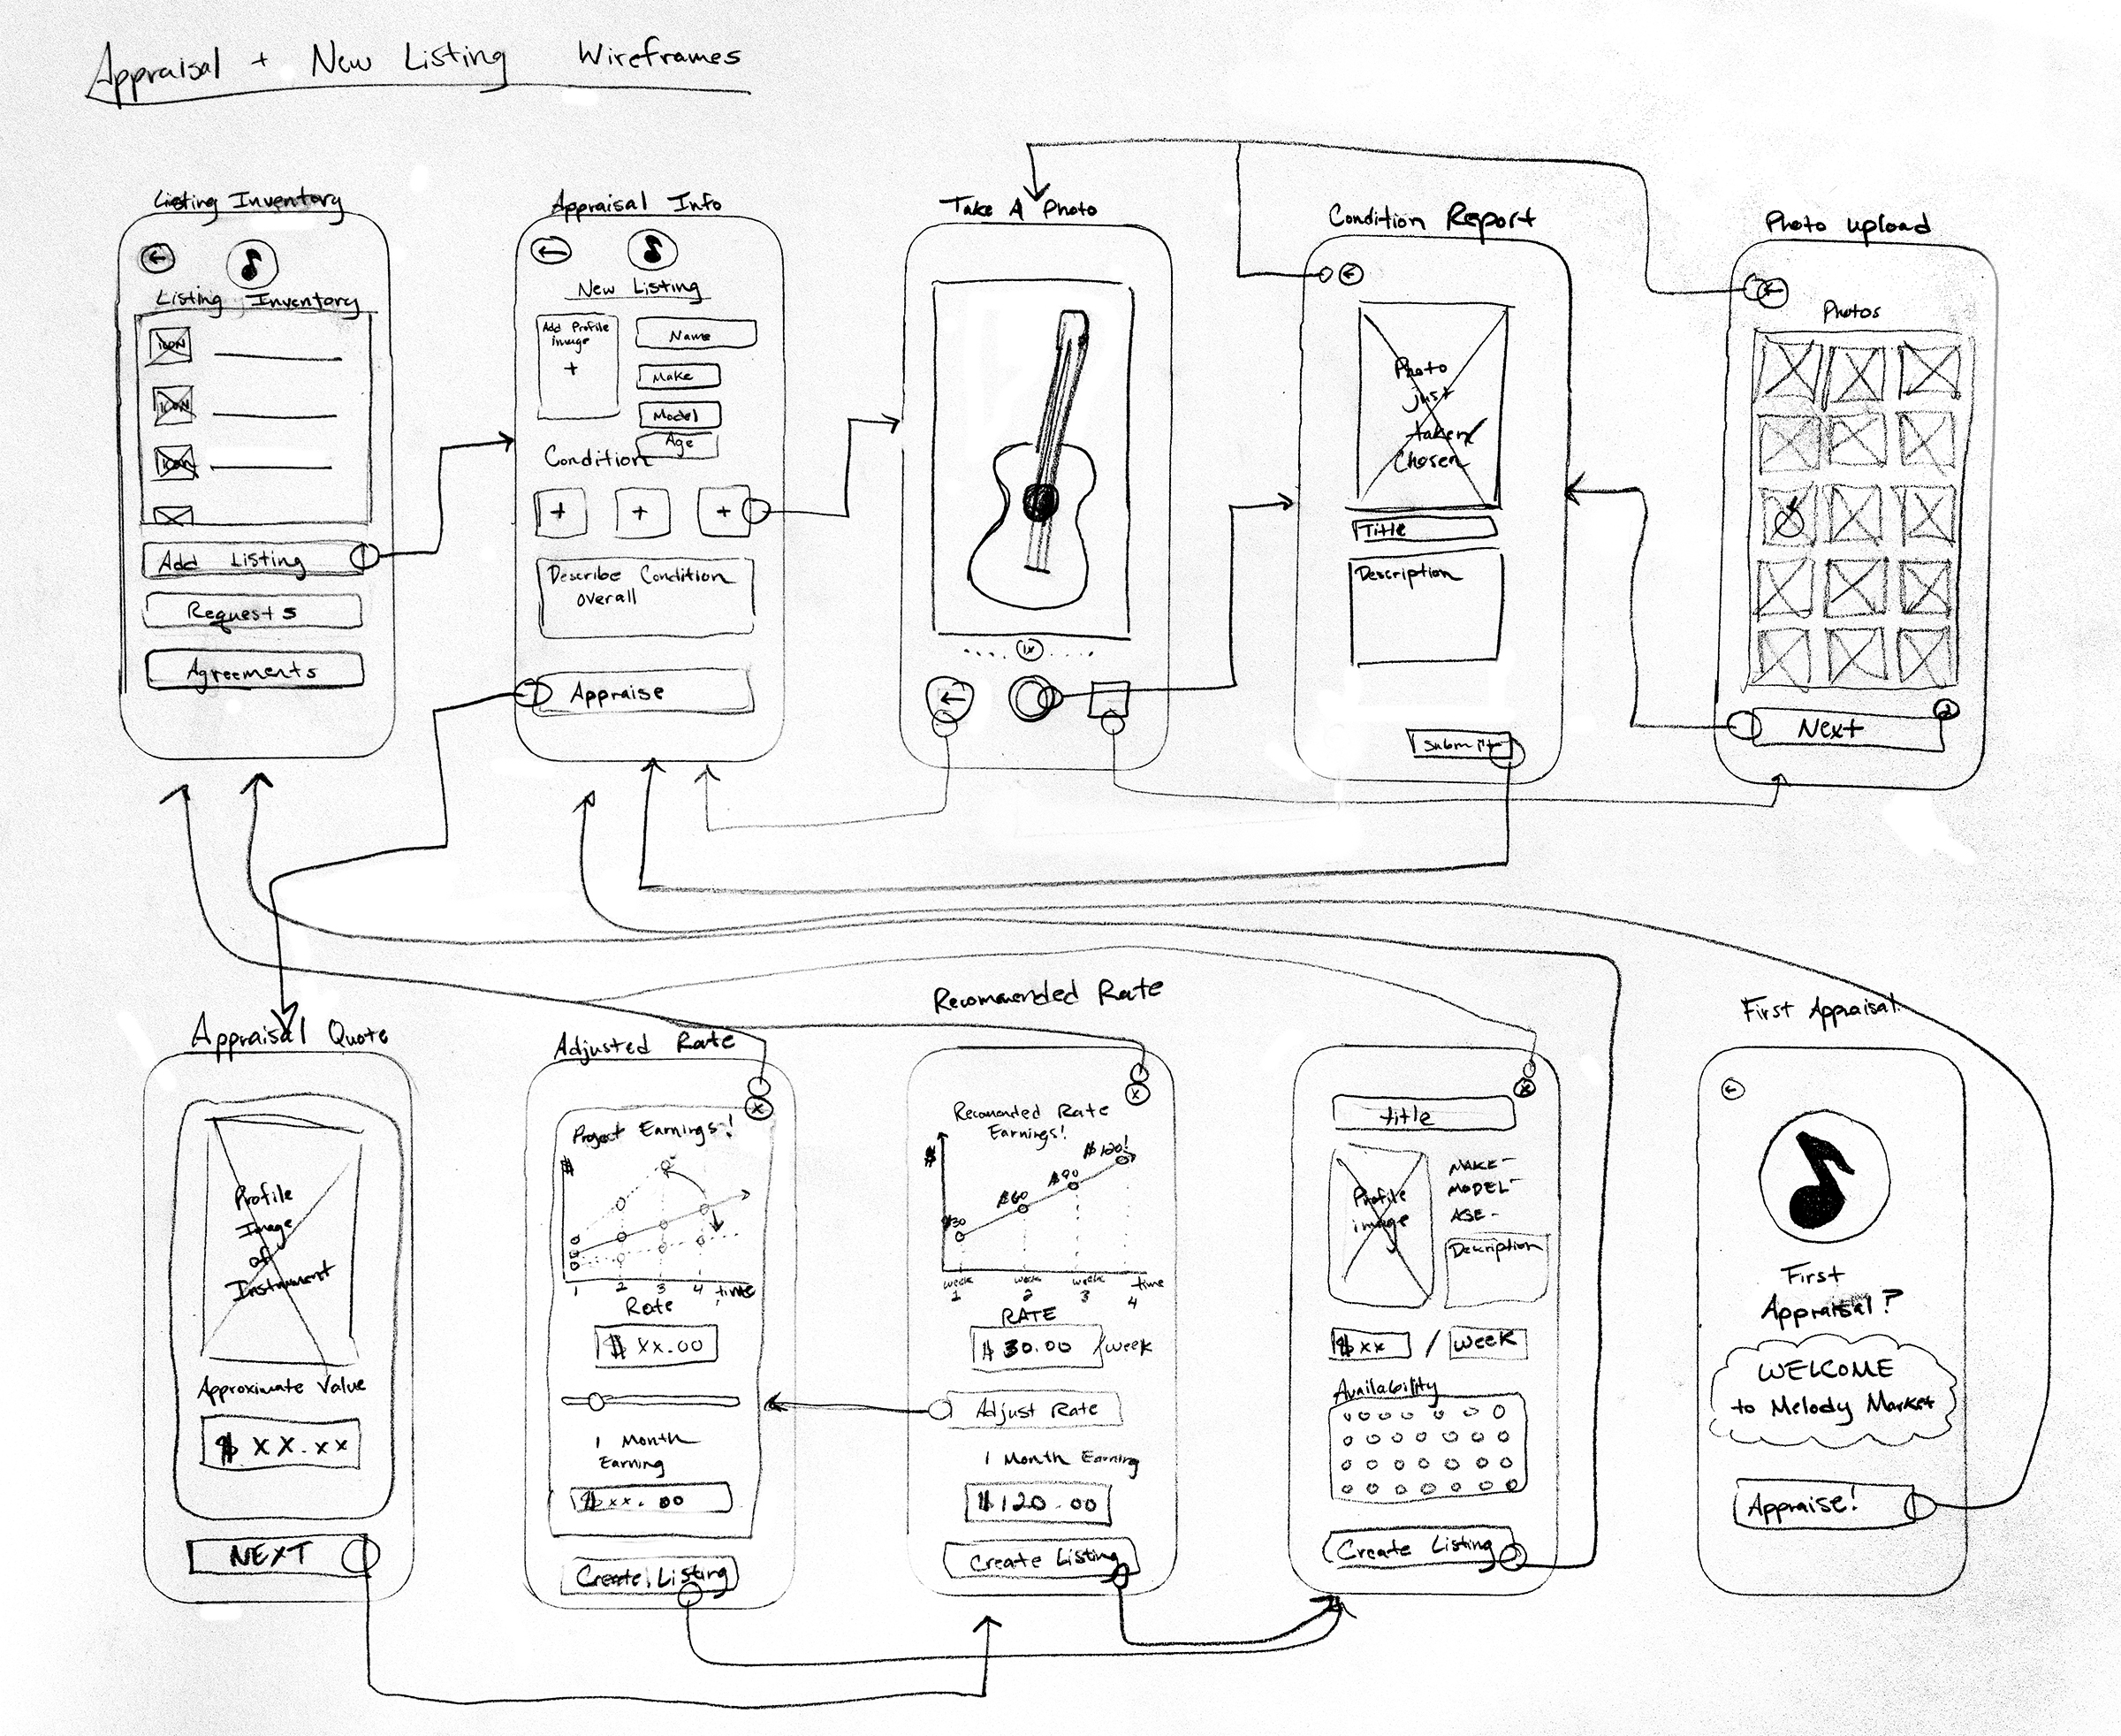 Appraisal + New Listing Wireframes
Listing Inventory
Listing Inventory
ICON
ICON
ICON
Add Listing
Requests
Agreements
Appraisal Info
New Listing
Add Profile
image
+
Name
Make
Model
Age
Condition
+ + +
Describe Condition
overall
Appraise
Take A Photo
1x
Condition Report
Photo
just
taken/
Chosen
Title
Description
Submit
Photo Upload
Photos
Next
Appraisal Quote
Profile
Image
of
Instrument
Approximate Value
$ XX.XX
NEXT
Adjusted Rate
Project Earnings!
$
1 2 3 4 time
Rate
$ XX.00
1 Month
Earning
$xx.00
Create Listing
Recommended Rate
x
Recomended Rate
Earnings!
$
$30
$60
$90
$120!
week week week time
1 2 3 4
RATE
$ 30.00 /week
Adjust Rate
1 Month Earning
$120.00
Create Listing
x
title
Profile
image
MAKE-
MODEL-
AGE-
Description
$xx / week
Availability
Create Listing
First Appraisal
First
Appraisal?
WELCOME
to Melody Market
Appraise!